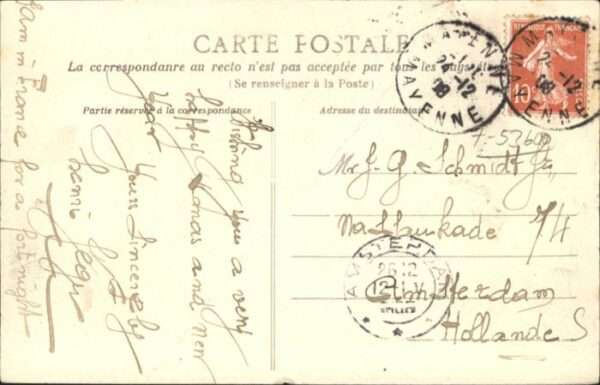 CARTE POSTALE
La correspondance au recto n'est pas acceptée par tous les pays étra
(Se renseigner à la Poste)
Partie réservée à la correspondance
Adresse du destinataire
MAYENNE
MAYENNE
24-12
08
MAYENNE
12
08
10
Wishing you a very
happy Xmas and New
Year
Yours sincerely
I am in France for a fortnight
Mr J. G. Schmidt Jr
Nassaukade 74
Amsterdam
Hollande
AMSTERDAM
26 12